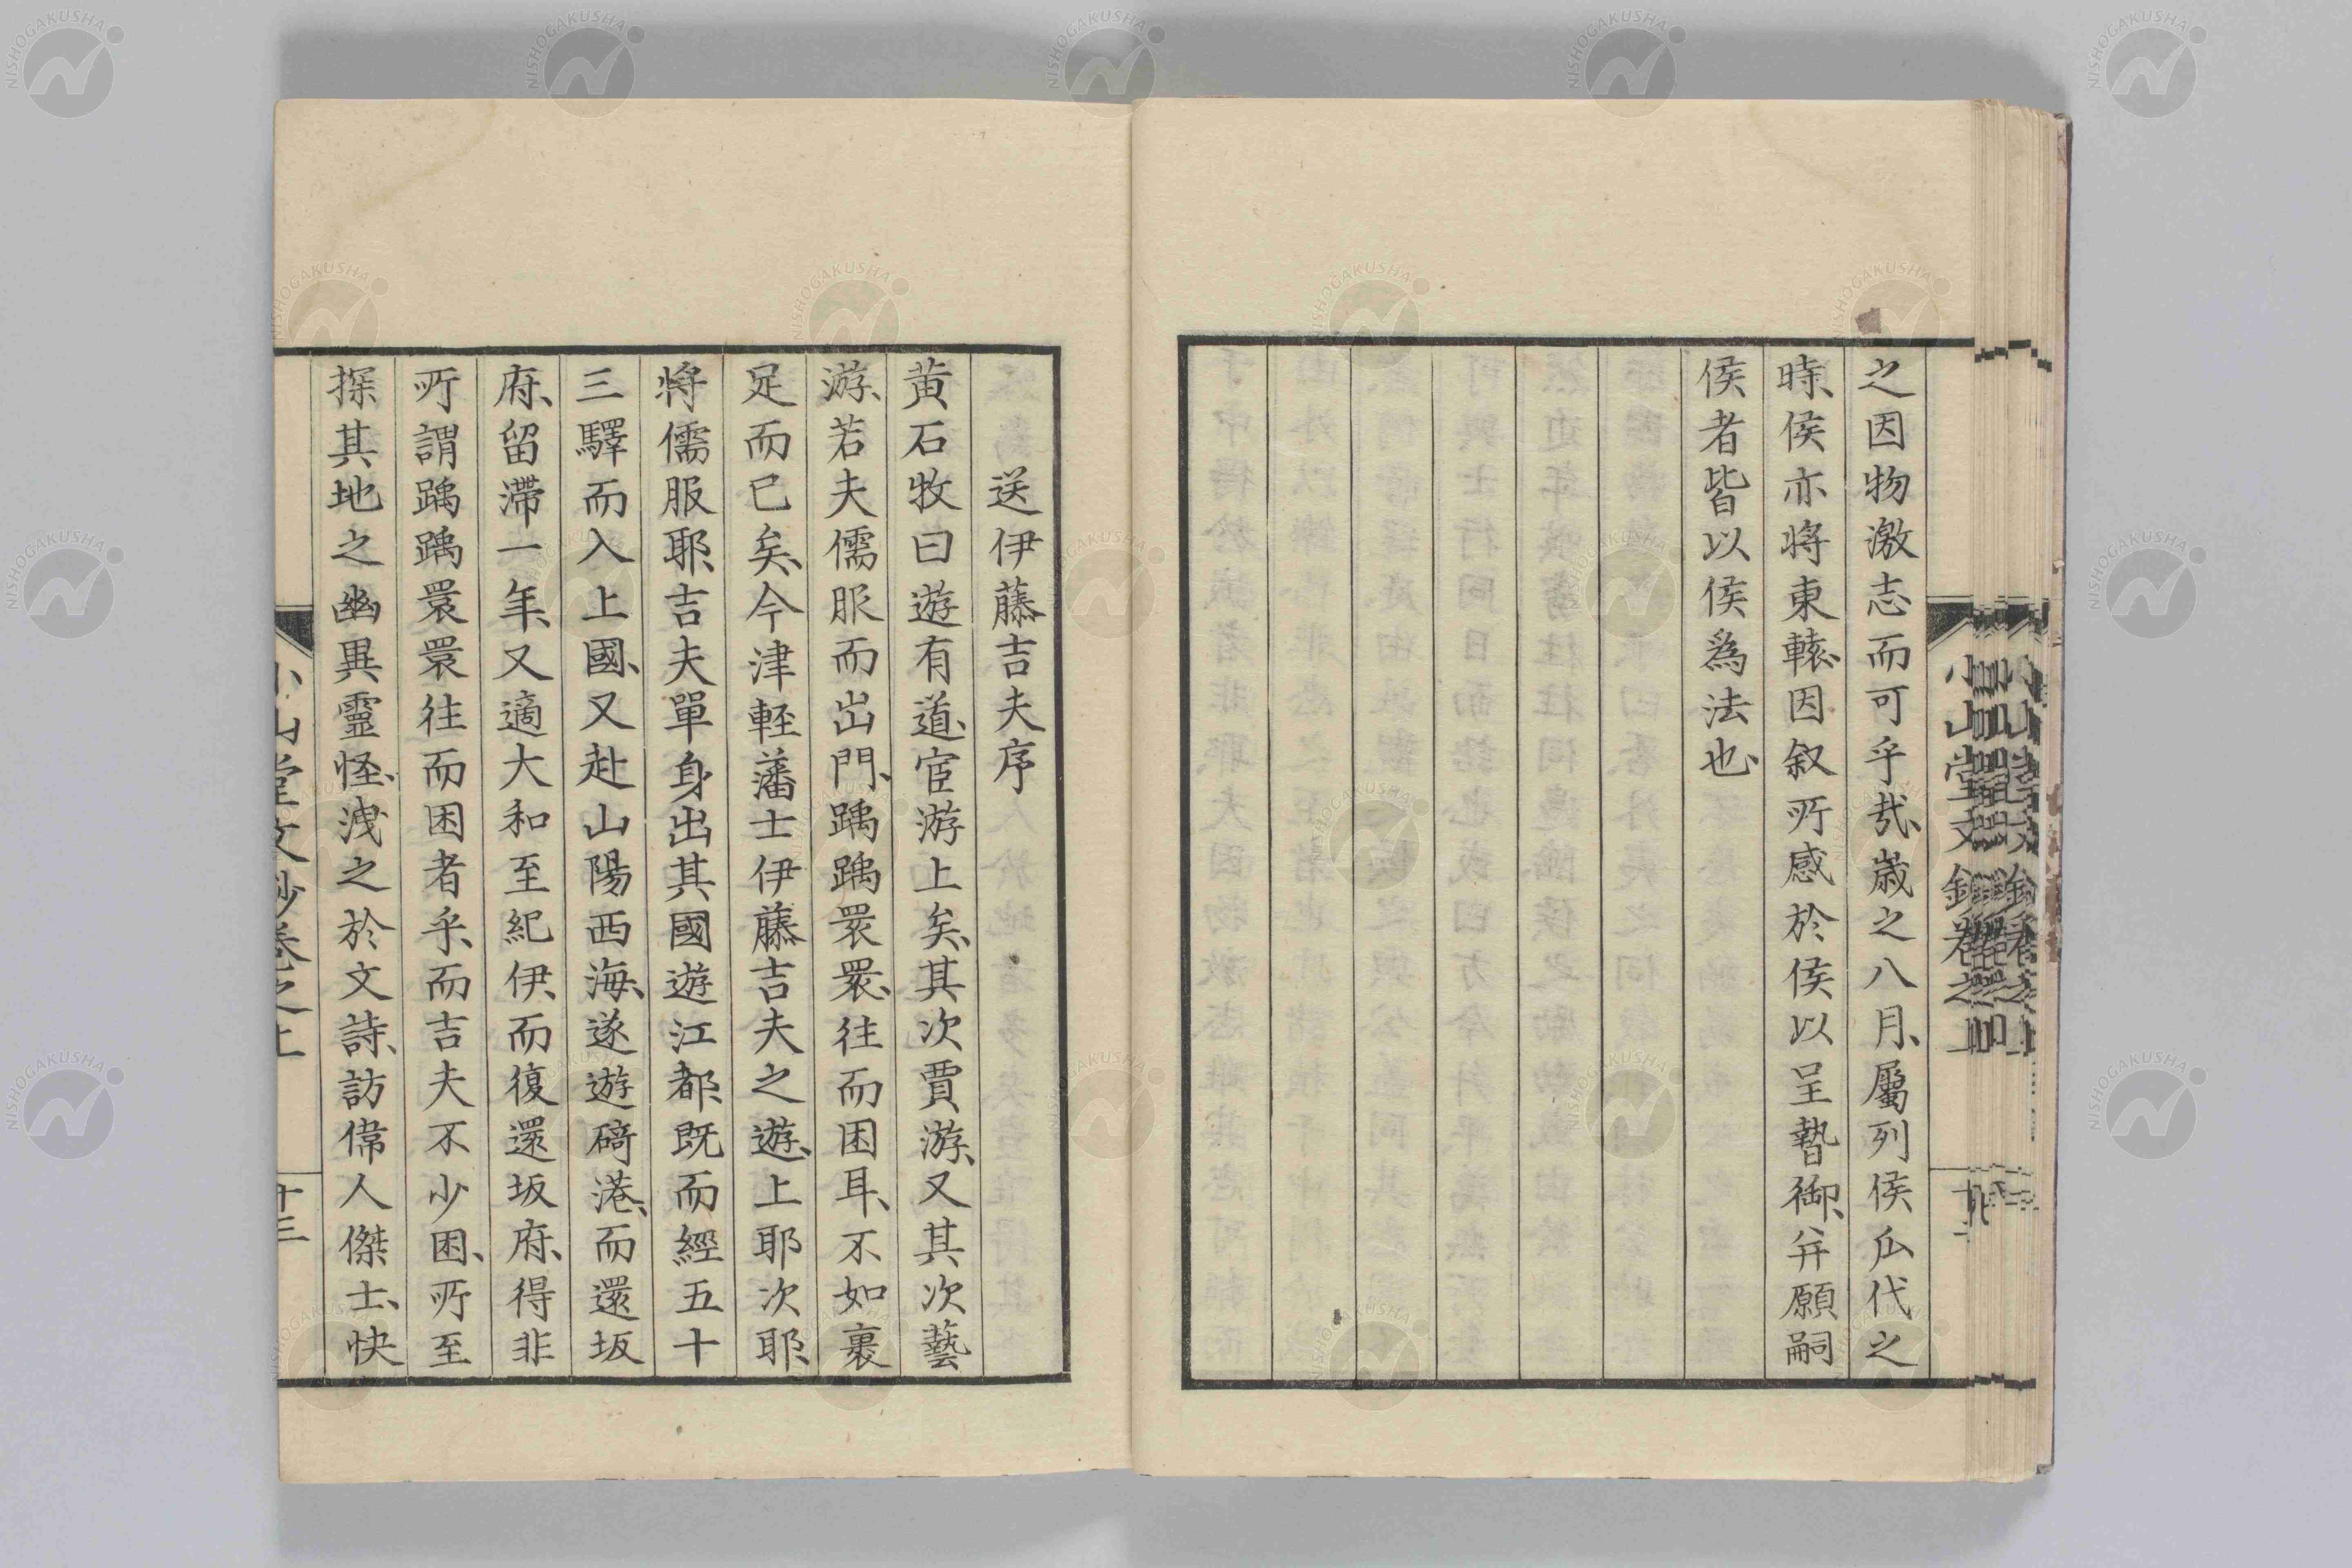 之因物激志而可乎哉、歲之八月、屬列侯瓜代之
時、侯亦將東轅、因叙所感於侯以呈暬御、并願嗣
侯者皆以侯爲法也、
送伊藤吉夫序
黄石牧曰遊有道、宦游上矣、其次賈游、又其次藝
游、若夫儒服而出門、踽踽睘睘、往而困耳、不如裹
足而已矣、今津輕藩士伊藤吉夫之遊、上耶次耶、
將儒服耶、吉夫單身出其國遊江都、既而經五十
三驛而入上國、又赴山陽西海、遂遊碕港、而還坂
府、留滯一年、又適大和至紀伊、而復還坂府、得非
所謂踽踽睘睘往而困者乎、而吉夫不少困、所至
探其地之幽異靈怪、洩之於文詩、訪偉人傑士、快
小山堂文鈔卷之上
十三
NISHOGAKUSHA